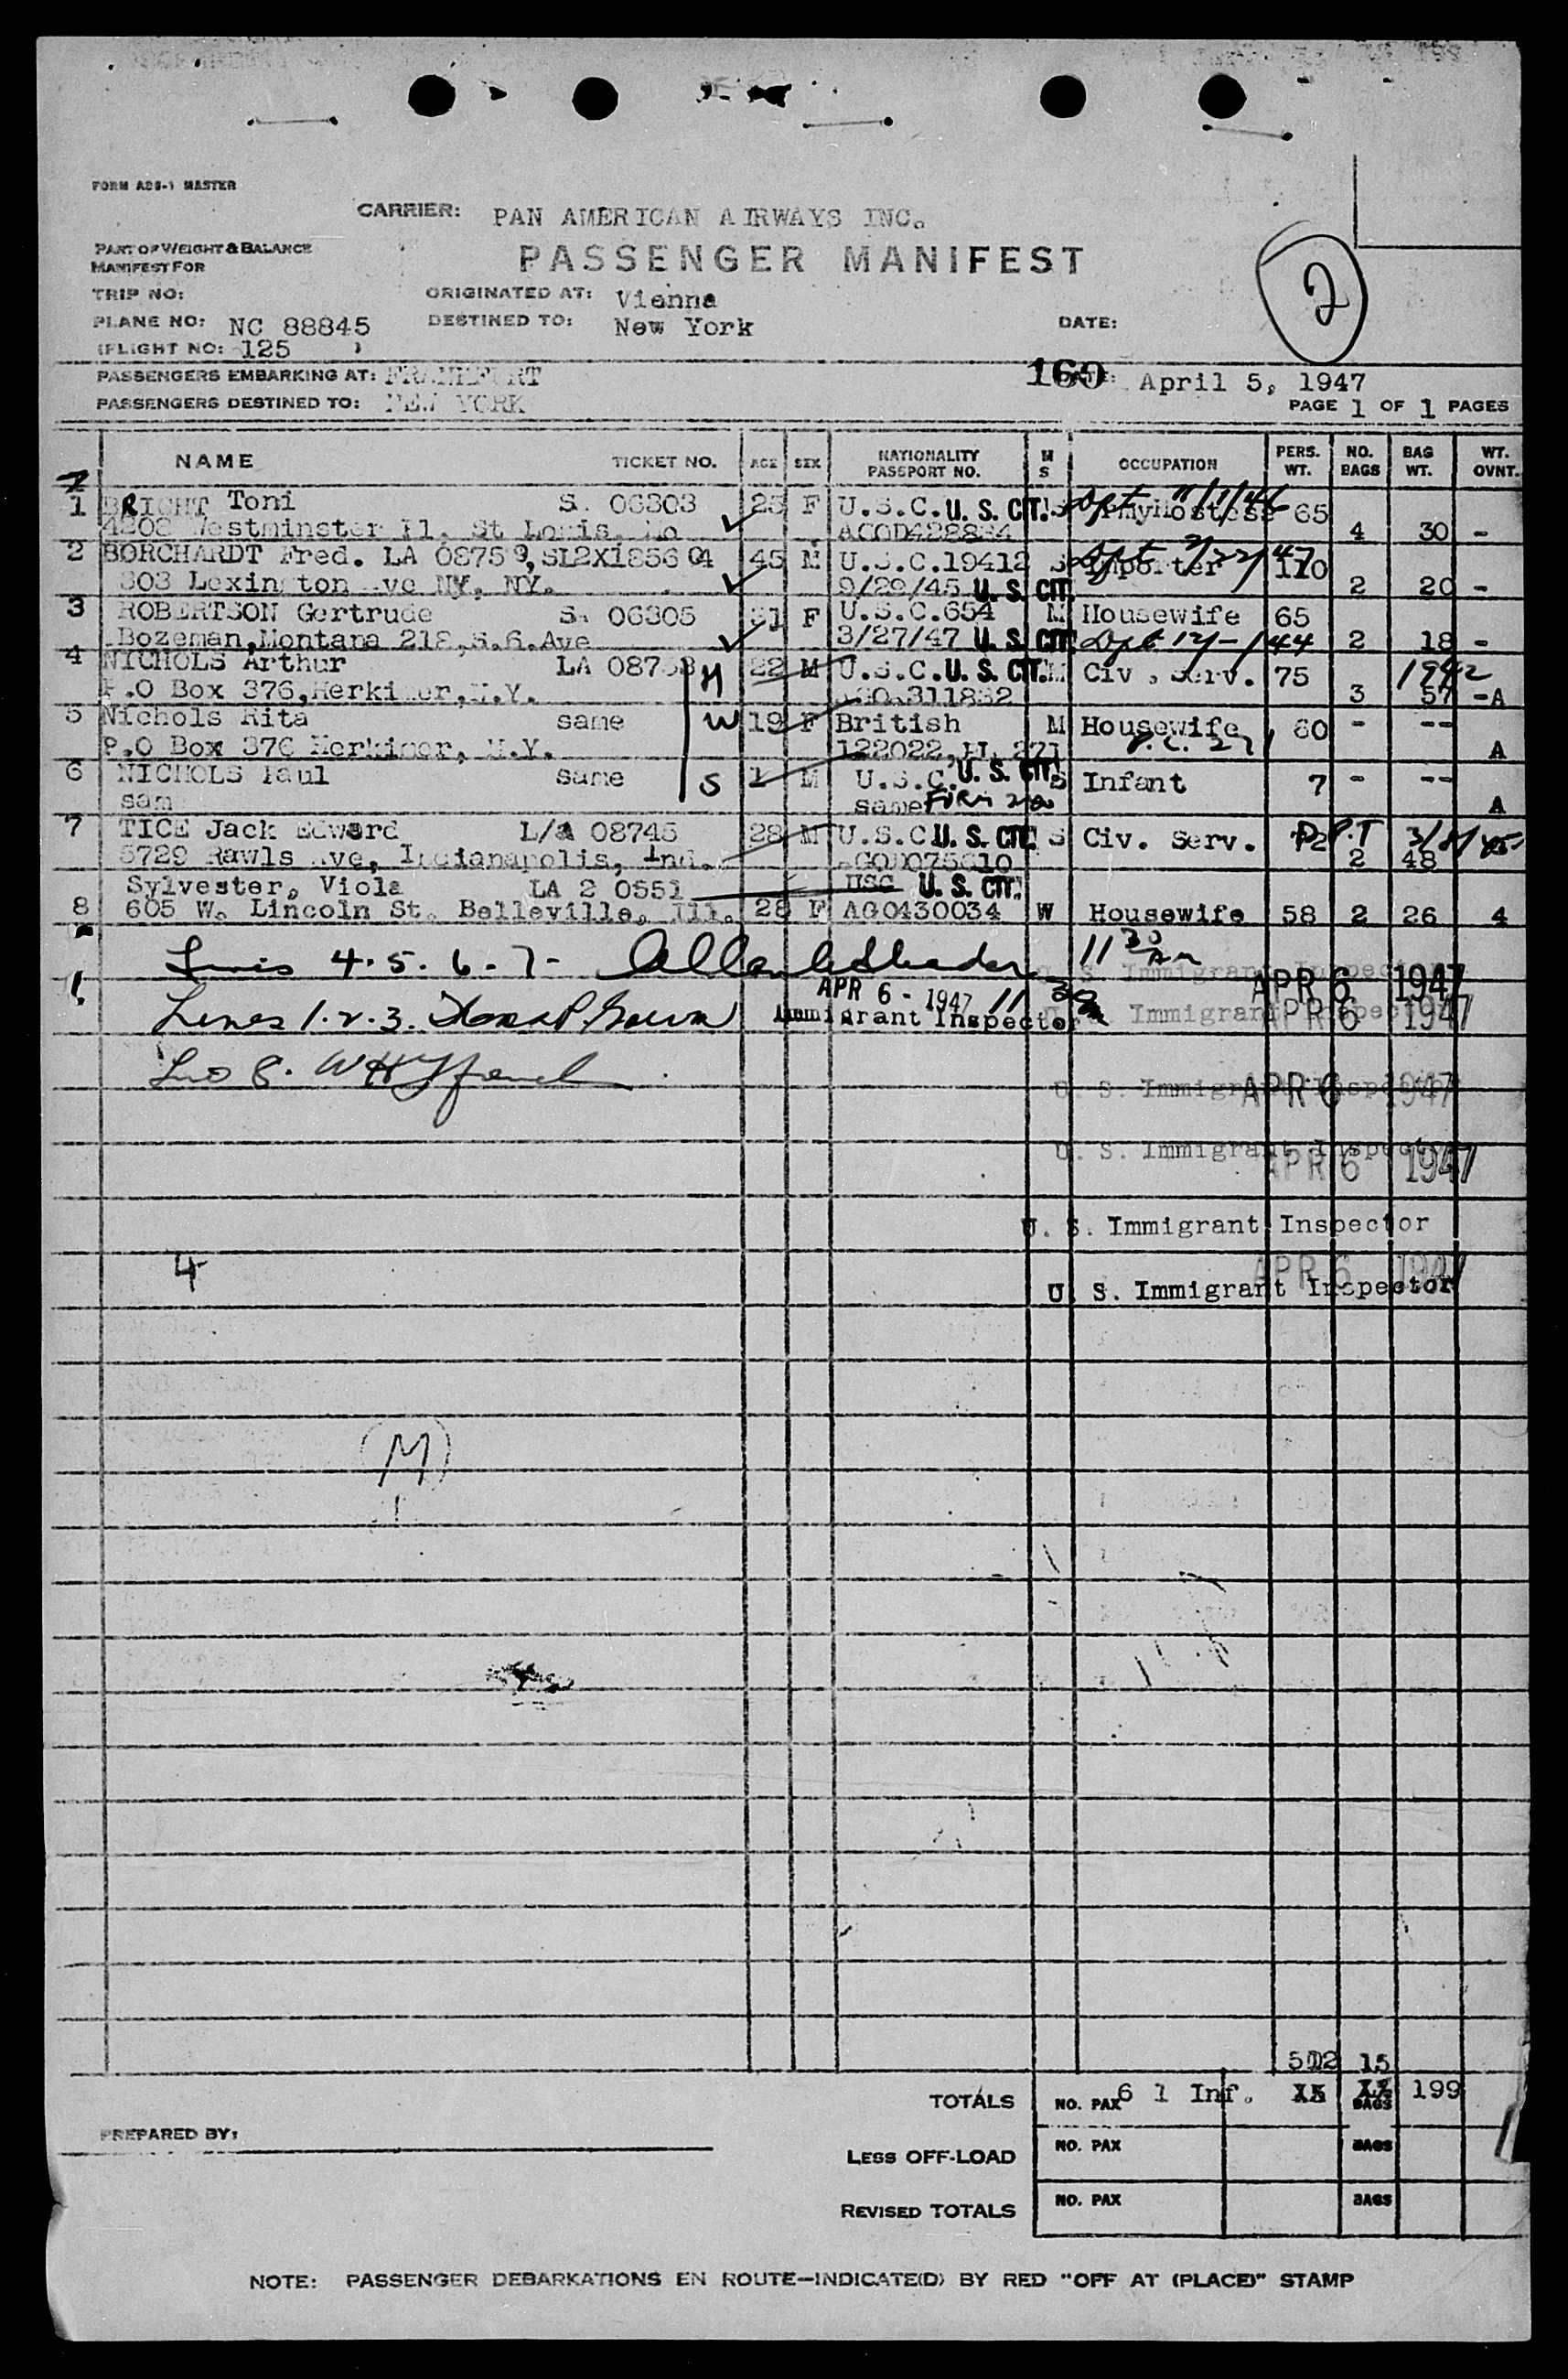 FORM ABS-1 MASTER
CARRIER: PAN AMERICAN AIRWAYS INC.
PART OF WEIGHT & BALANCE
MANIFEST FOR
PASSENGER MANIFEST
2
TRIP NO: ORIGINATED AT: Vienna
PLANE NO: NC 88845 DESTINED TO: New York DATE:
(FLIGHT NO: 125 )
PASSENGERS EMBARKING AT: FRANKFURT 160 April 5, 1947
PASSENGERS DESTINED TO: NEW YORK
PAGE 1 OF 1 PAGES
NAME TICKET NO. AGE SEX NATIONALITY PASSPORT NO. M S OCCUPATION PERS. WT. NO. BAGS BAG WT. WT. OVNT.
1 BRIGHT Toni 06303 25 F U.S.C. U. S. CIT. S Dpt 11/1/46 65
Westminster Pl. St Louis, Mo 4 30 -
2 BORCHARDT Fred. LA 08759, SL2X1856 04 45 M U.S.C.19412 S Importer Dpt 2/22/47 110
303 Lexington Ave NY, NY. 9/29/45 U. S. CIT. 2 20 -
3 ROBERTSON Gertrude 06305 31 F U.S.C.654 M Housewife 65
Bozeman,Montana 218,S.6.Ave 3/27/47 U. S. CIT. Dpt 12/-/44 2 18 -
4 NICHOLS Arthur LA 08758 H 22 M U.S.C. U. S. CIT. M Civ. Serv. 75 1942
P.O Box 376,Herkimer,N.Y. 311832 3 57 -A
5 Nichols Rita same W 19 F British M Housewife 60 - --
P.O Box 376 Herkimer, N.Y. 122022, 271 P.C. 271 A
6 NICHOLS Paul same S 1 M U.S.C. U. S. CIT. S Infant 7 - --
same same FORM A
7 TICE Jack Edward L/a 08745 28 M U.S.C U. S. CIT. S Civ. Serv. D.P.T
5729 Rawls Ave, Indianapolis, Ind. 2 48
Sylvester, Viola LA 2 0551 USC U. S. CIT.
8 605 W. Lincoln St. Belleville, Ill. 28 F AGO430034 W Housewife 58 2 26 4
4.5.6.7- 11 30 AM
U. S. Immigrant Inspector APR 6 1947
APR 6 - 1947 11 30
Lines 1.2.3. Immigrant Inspector
Immigrant Inspector APR 6 1947
8.
U. S. Immigrant Inspector APR 6 1947
U. S. Immigrant Inspector APR 6 1947
U. S. Immigrant Inspector
4
APR 6 1947
U. S. Immigrant Inspector
M
512 15
TOTALS NO. PAX 6 1 Inf. BAGS 199
PREPARED BY:
LESS OFF-LOAD NO. PAX BAGS
REVISED TOTALS NO. PAX BAGS
NOTE: PASSENGER DEBARKATIONS EN ROUTE—INDICATE(D) BY RED "OFF AT (PLACE)" STAMP